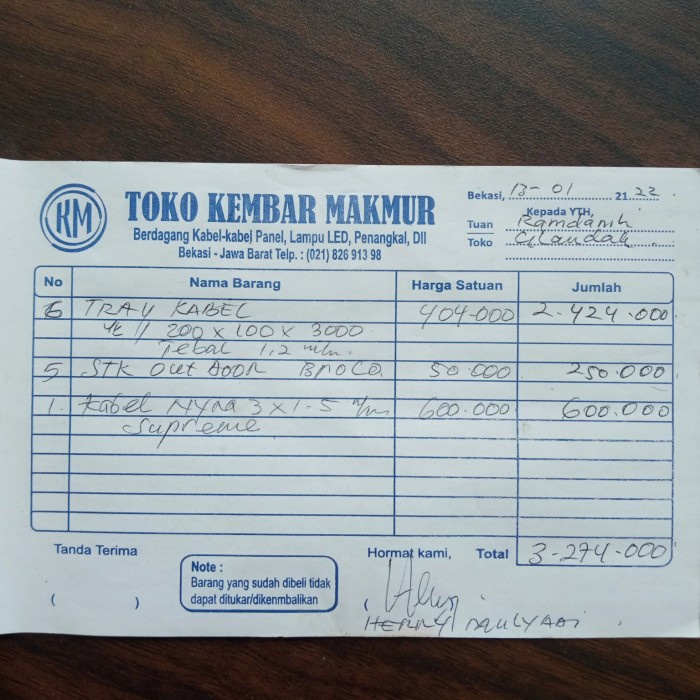 KM
TOKO KEMBAR MAKMUR
Berdagang Kabel-kabel Panel, Lampu LED, Penangkal, Dll
Bekasi - Jawa Barat Telp. : (021) 826 913 98
Bekasi, 13-01 2122
Kepada YTH,
Tuan Ramdanih
Toko Cilandak
No Nama Barang Harga Satuan Jumlah
6 TRAY KABEL 404.000 2.424.000
200 x 100 x 3000
Tebal 1,2 m/m.
5 STK Out Door Broco 50.000 250.000
1. Kabel NYM 3 x 1.5 600.000 600.000
Supreme
Tanda Terima Hormat kami, Total 3-274-000
Note :
Barang yang sudah dibeli tidak
dapat ditukar/dikenmbalikan
( ) (
HERRY